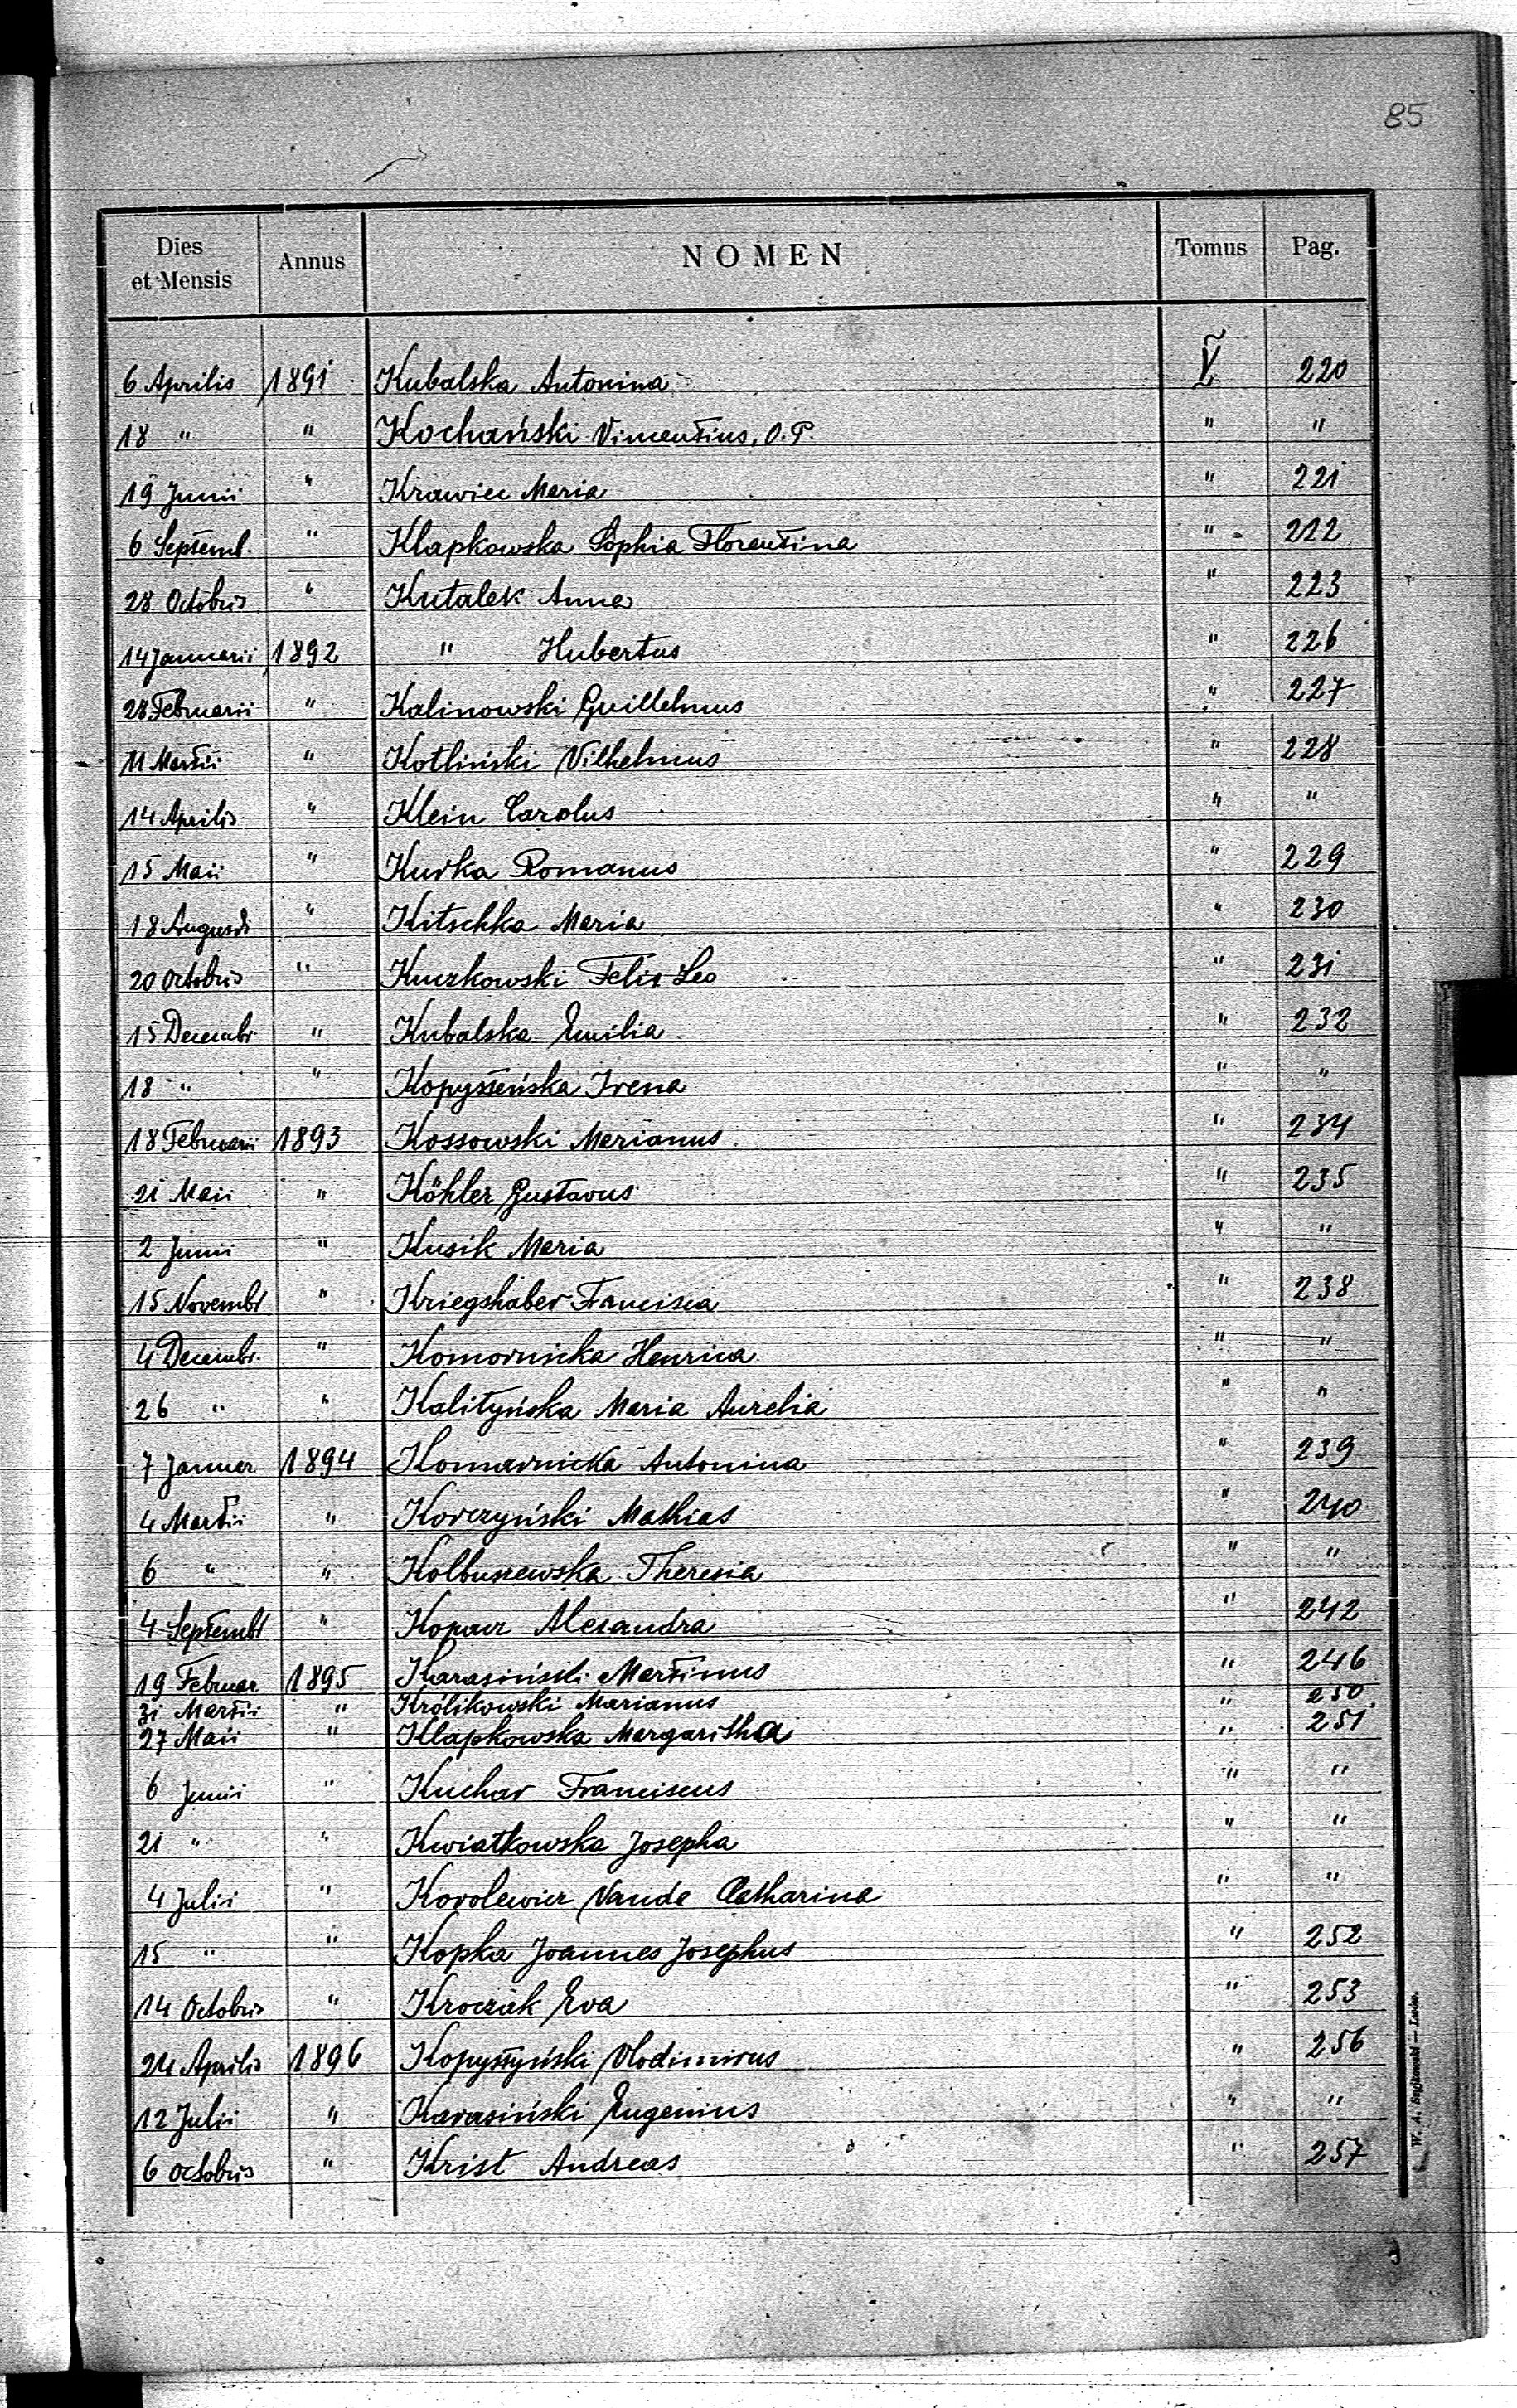 85
Dies et Mensis Annus NOMEN Tomus Pag.
6 Aprilis 1891 Kubalska Antonina V 220
18 " " Kochański Vincentius, O.P. " "
19 Junii " Krawiec Maria " 221
6 Septemb. " Klapkowska Sophia Florentina " 222
28 Octobris " Kutalek Anna " 223
14 Januarii 1892 " Hubertus " 226
28 Februarii " Kalinowski Guillelmus " 227
11 Martii " Kotliński Vilhelmus " 228
14 Aprilis " Klein Carolus " "
15 Maii " Kurka Romanus " 229
18 Augusti " Kitschka Maria " 230
20 Octobris " Kuczkowski Felix Leo " 231
15 Decembr " Kubalska Emilia " 232
18 " " Kopysteńska Irena " "
18 Februarii 1893 Kossowski Marianus " 234
21 Maii " Köhler Gustavus " 235
2 Junii " Kusik Maria " "
15 Novembr " Kriegshaber Francisca " 238
4 Decembr. " Komornicka Henrica " "
26 " " Kalityńska Maria Aurelia " "
7 Januar 1894 Komarnicka Antonina " 239
4 Martii " Korczyński Mathias " 240
6 " " Kolbuszewska Theresia " "
4 Septembr " Kopacz Alexandra " 242
19 Februar 1895 Karasiński Martinus " 246
31 Martii " Królikowski Marianus " 250
27 Maii " Klapkowska Margaritha " 251
6 Junii " Kuchar Franciscus " "
21 " " Kwiatkowska Josepha " "
4 Julii " Korolewicz Vanda Catharina " "
15 " " Kopka Joannes Josephus " 252
14 Octobris " Kroczak Eva " 253
24 Aprilis 1896 Kopystyński Vlodimirus " 256
12 Julii " Karasiński Eugenius " "
6 Octobris " Krist Andreas " 257